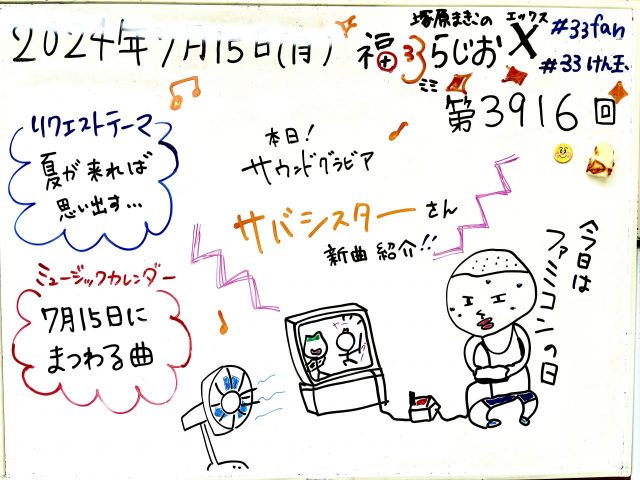 2024年7月15日(月)
塚原まきこの
福33らじお
ミミ
エックス
X
#33fan
#33けん玉
第3916回
リクエストテーマ
夏が来れば
思い出す…
本日!
サウンドグラビア
サバシスターさん
新曲紹介!!
ミュージックカレンダー
7月15日に
まつわる曲
今日は
ファミコンの日